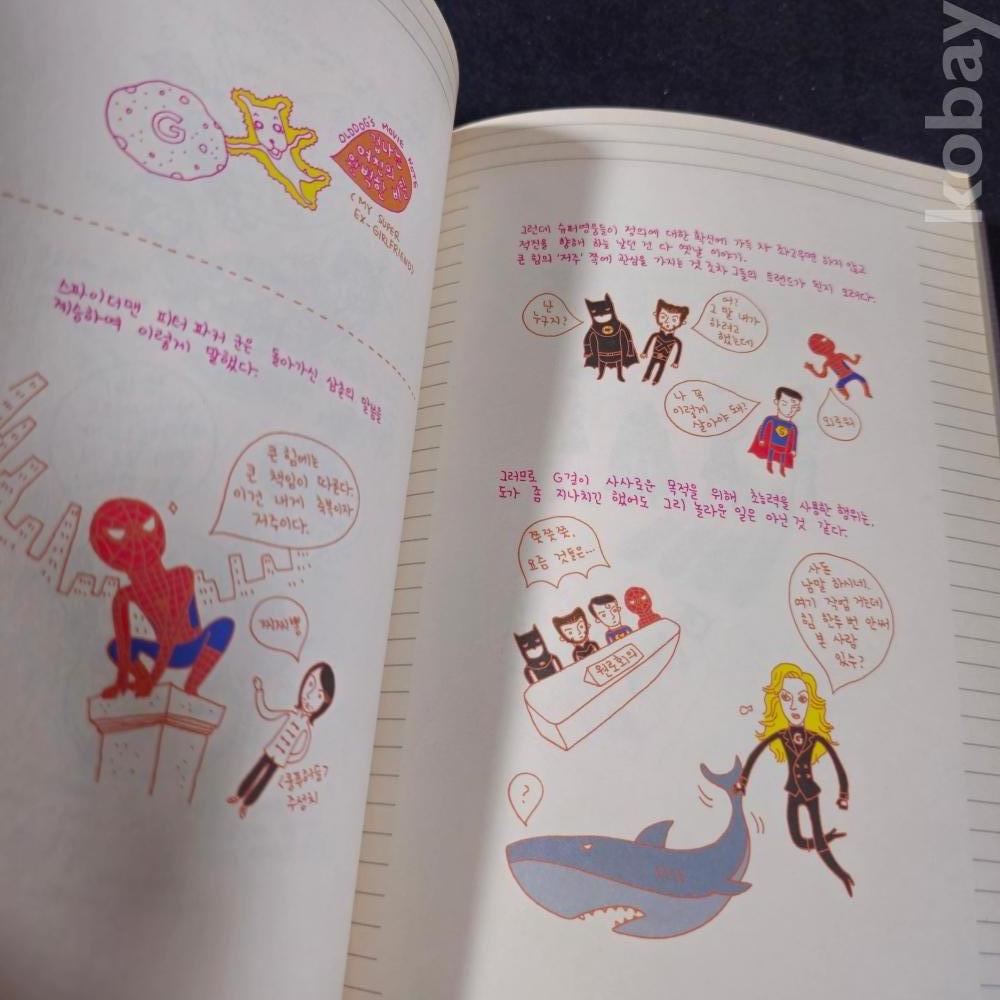 G
OLDDOG'S MOVIE NOTE
겁나는
여친의
완벽한 비밀
(MY SUPER
EX-GIRLFRIEND)
스파이더맨 피터 파커 군은 돌아가신 삼촌의 말씀을
계승하여 이렇게 말했다.
큰 힘에는
큰 책임이 따른다.
이건 내게 축복이자
저주이다.
찌찌뽕
<쿵푸허슬>
주성치
그런데 슈퍼영웅들이 정의에 대한 확신에 가득 차 좌고우면 하지 않고
적진을 향해 하늘 날던 건 다 옛날 이야기.
큰 힘의 '저주' 쪽에 관심을 가지는 것 조차 그들의 트렌드가 된지 오래다.
난
누구지?
어?
그 말 내가
하려고
했는데
나 꼭
이렇게
살아야 돼?
외로워
그러므로 G걸이 사사로운 목적을 위해 초능력을 사용한 행위는,
도가 좀 지나치긴 했어도 그리 놀라운 일은 아닌 것 같다.
쯧쯧쯧,
요즘 것들은…
원로회의
사돈
남말 하시네!
여기 작업 거는데
힘 한두 번 안써
본 사람
있수?
G
?
kobay